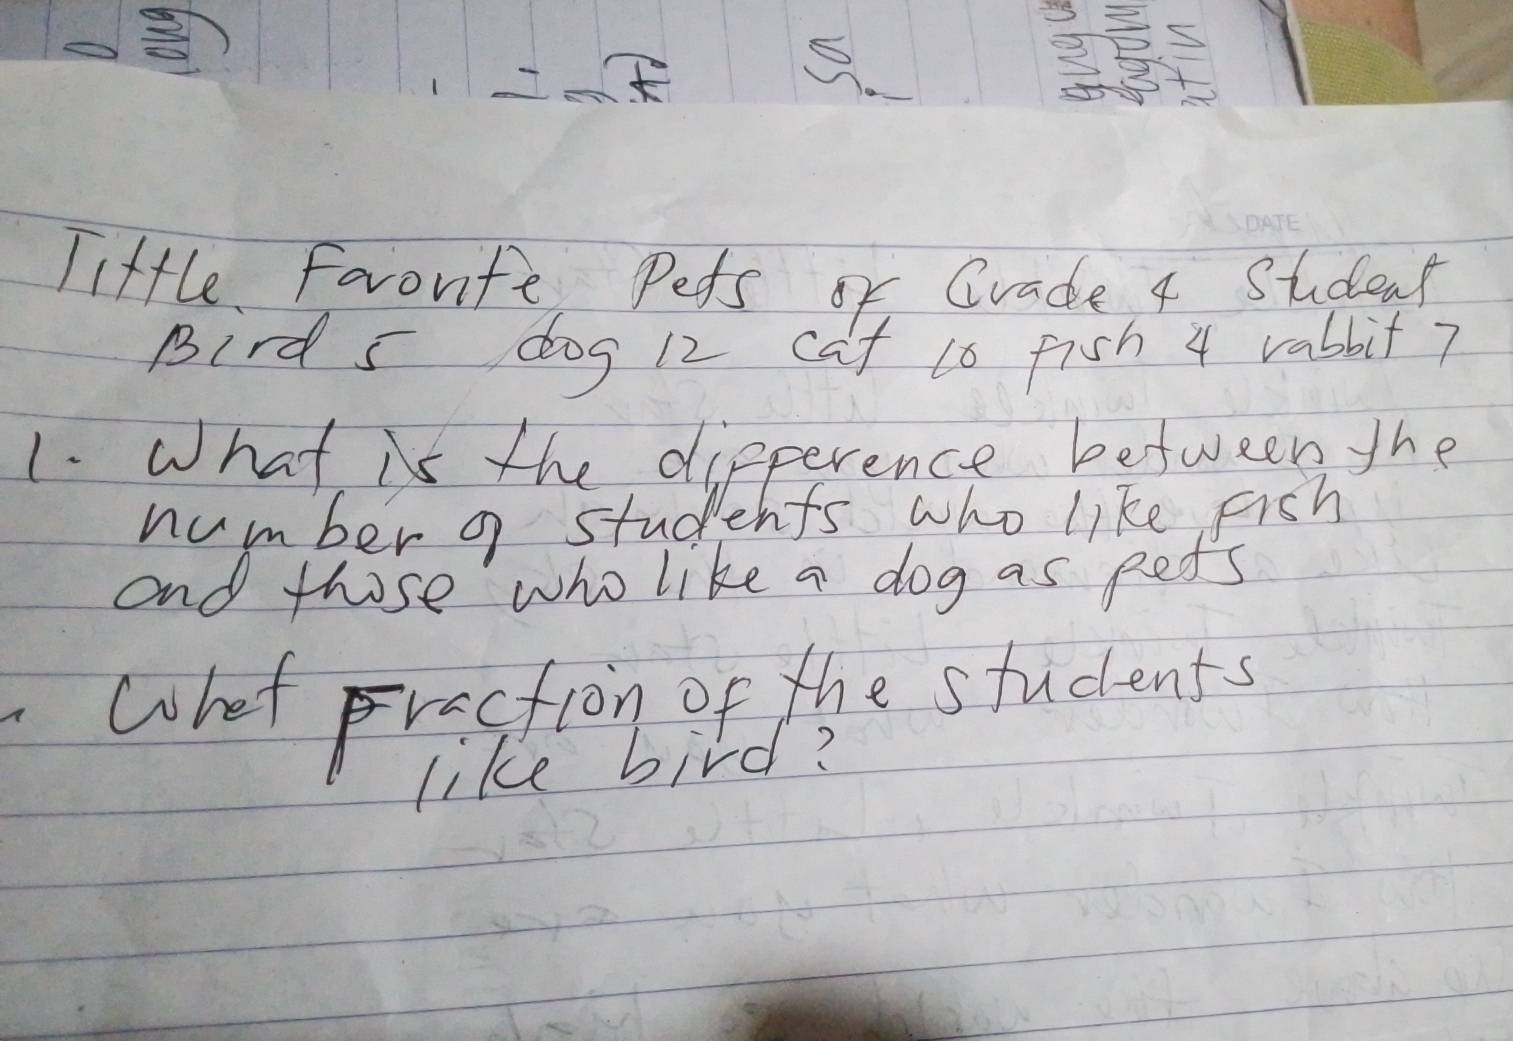 Tittle. Favorite Pets of Grade 4 Student
Bird 5 dog 12 cat 10 fish 4 rabbit 7
1. What is the difference between the
number of students who like fish
and those who like a dog as pets
. What Fraction of the students
like bird?
DATE
ong
sa